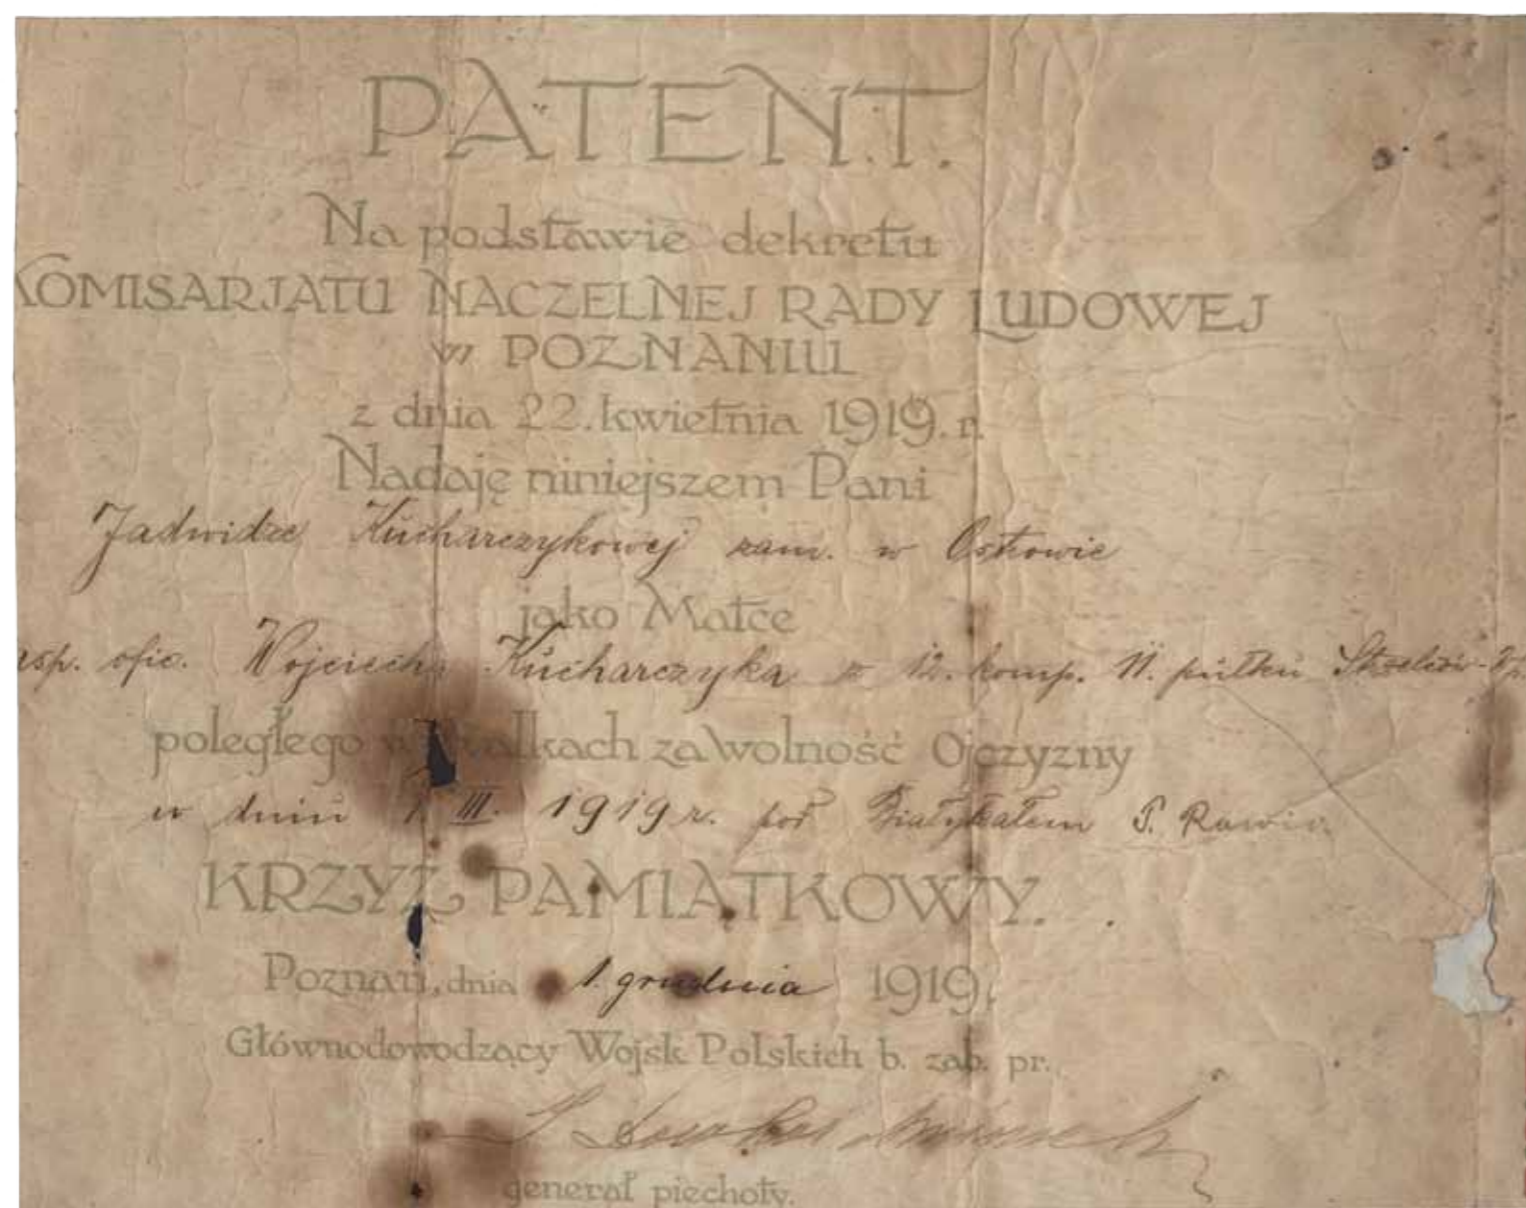 PATENT.
Na podstawie dekretu
KOMISARJATU NACZELNEJ RADY LUDOWEJ
w POZNANIU
z dnia 22. kwietnia 1919. r.
Nadaję niniejszem Pani
Jadwidze Kucharczykowej zam. w Ostrowie
jako Matce
asp. ofic. Wojciecha Kucharczyka z 12. komp. 11. pułku Strzelców
poległego w walkach za Wolność Ojczyzny
w dniu 1. III. 1919 r. pod Białykałem P. Rawicz
KRZYŻ PAMIĄTKOWY.
Poznań, dnia 1. grudnia 1919.
Głównodowodzący Wojsk Polskich b. zab. pr.
generał piechoty.